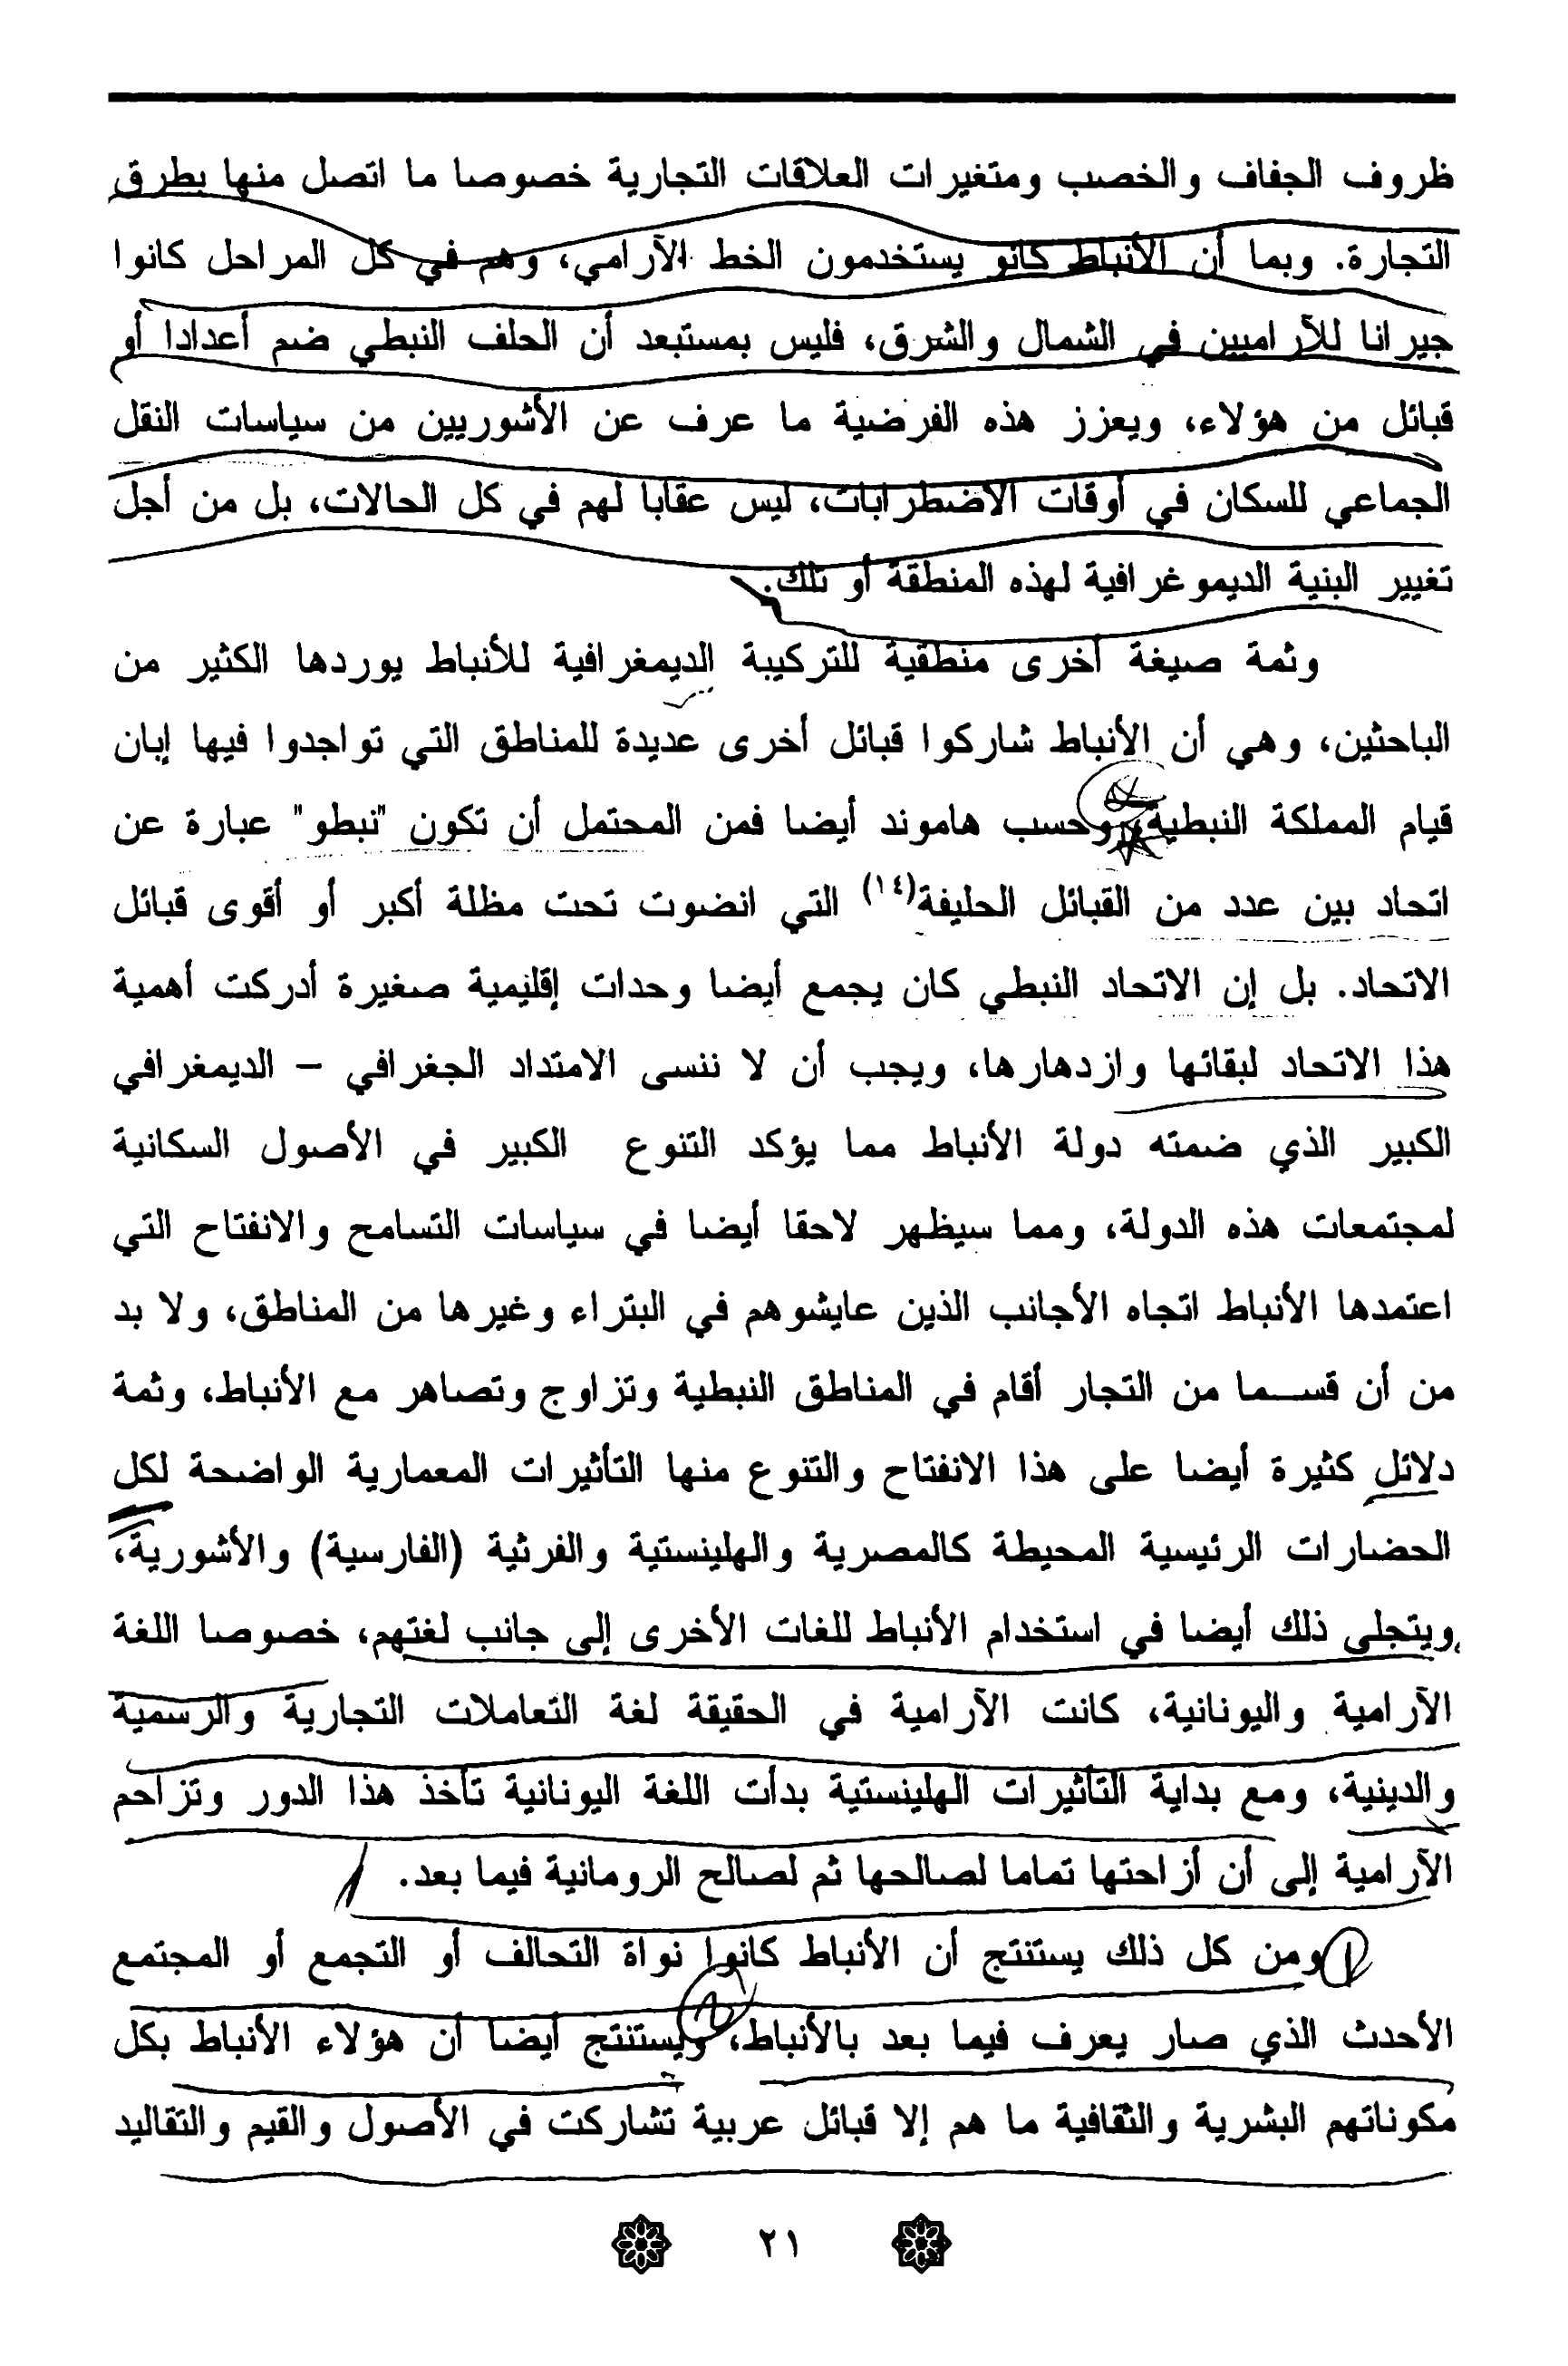 ظروف الجفاف والخصب ومتغيرات العلاقات التجارية خصوصا ما اتصل منها بطرق
التجارة. وبما أن الأنباط كانو يستخدمون الخط الآرامي، وهم في كل المراحل كانوا
جيرانا للآراميين في الشمال والشرق، فليس بمستبعد أن الحلف النبطي ضم أعدادا أو
قبائل من هؤلاء، ويعزز هذه الفرضية ما عرف عن الأشوريين من سياسات النقل
الجماعي للسكان في أوقات الاضطرابات، ليس عقابا لهم في كل الحالات، بل من أجل
تغيير البنية الديموغرافية لهذه المنطقة أو تلك.
وثمة صيغة أخرى منطقية للتركيبة الديمغرافية للأنباط يوردها الكثير من
الباحثين، وهي أن الأنباط شاركوا قبائل أخرى عديدة للمناطق التي تواجدوا فيها إبان
قيام المملكة النبطية، وحسب هاموند أيضا فمن المحتمل أن تكون "نبطو" عبارة عن
اتحاد بين عدد من القبائل الحليفة(١٤) التي انضوت تحت مظلة أكبر أو أقوى قبائل
الاتحاد. بل إن الاتحاد النبطي كان يجمع أيضا وحدات إقليمية صغيرة أدركت أهمية
هذا الاتحاد لبقائها وازدهارها، ويجب أن لا ننسى الامتداد الجغرافي – الديمغرافي
الكبير الذي ضمته دولة الأنباط مما يؤكد التنوع الكبير في الأصول السكانية
لمجتمعات هذه الدولة، ومما سيظهر لاحقا أيضا في سياسات التسامح والانفتاح التي
اعتمدها الأنباط اتجاه الأجانب الذين عايشوهم في البتراء وغيرها من المناطق، ولا بد
من أن قســما من التجار أقام في المناطق النبطية وتزاوج وتصاهر مع الأنباط، وثمة
دلائل كثيرة أيضا على هذا الانفتاح والتنوع منها التأثيرات المعمارية الواضحة لكل
الحضارات الرئيسية المحيطة كالمصرية والهلينستية والفرثية (الفارسية) والأشورية،
ويتجلى ذلك أيضا في استخدام الأنباط للغات الأخرى إلى جانب لغتهم، خصوصا اللغة
الآرامية واليونانية، كانت الآرامية في الحقيقة لغة التعاملات التجارية والرسمية
والدينية، ومع بداية التأثيرات الهلينستية بدأت اللغة اليونانية تأخذ هذا الدور وتزاحم
الآرامية إلى أن أزاحتها تماما لصالحها ثم لصالح الرومانية فيما بعد.
ومن كل ذلك يستنتج أن الأنباط كانوا نواة التحالف أو التجمع أو المجتمع
الأحدث الذي صار يعرف فيما بعد بالأنباط، ويستنتج أيضا أن هؤلاء الأنباط بكل
مكوناتهم البشرية والثقافية ما هم إلا قبائل عربية تشاركت في الأصول والقيم والتقاليد
٢١